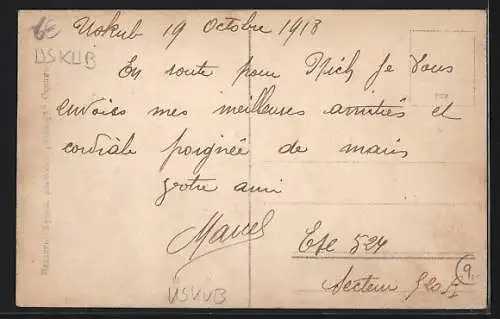 Uskub 19 Octobre 1918
USKUB
En route pour Nich Je Vous
envoies mes meilleures amitiés et
cordiale poignée de mains
Votre ami
Marcel
Eté 524
Secteur 520
9
USKUB